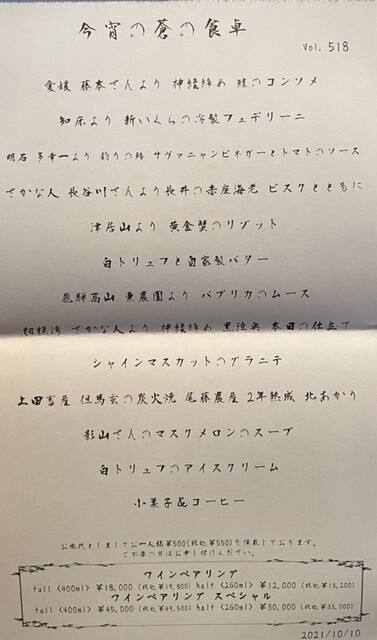 今宵の蒼の食卓
Vol. 518
愛媛 藤本さんより 神経締め 鮭のコンソメ
知床より 新いくらの冷製フェデリーニ
明石 より 釣りの サヴァニャンビネガーとトマトのソース
さかな人 長谷川さんより長井の赤座海老 ビスクとともに
津居山より 黄金蟹のリゾット
白トリュフと自家製バター
飛騨高山 東農園より パプリカのムース
相模湾 さかな人より 神経締め 黒陸奥 本日の仕立て
シャインマスカットのグラニテ
上田畜産 但馬玄の炭火焼 尾藤農産 2年熟成 北あかり
影山さんのマスクメロンのスープ
白トリュフのアイスクリーム
小菓子&コーヒー
お水代としましてお一人様¥500(税込¥550)を頂戴しております。
ご不要の方はお申し付けください。
ワインペアリング
full (400ml) ¥18,000 (税込 ¥19,800) half (260ml) ¥12,000 (税込 ¥13,200)
ワインペアリング スペシャル
full (400ml) ¥45,000 (税込 ¥49,500) half (260ml) ¥30,000 (税込 ¥33,000)
2021/10/10